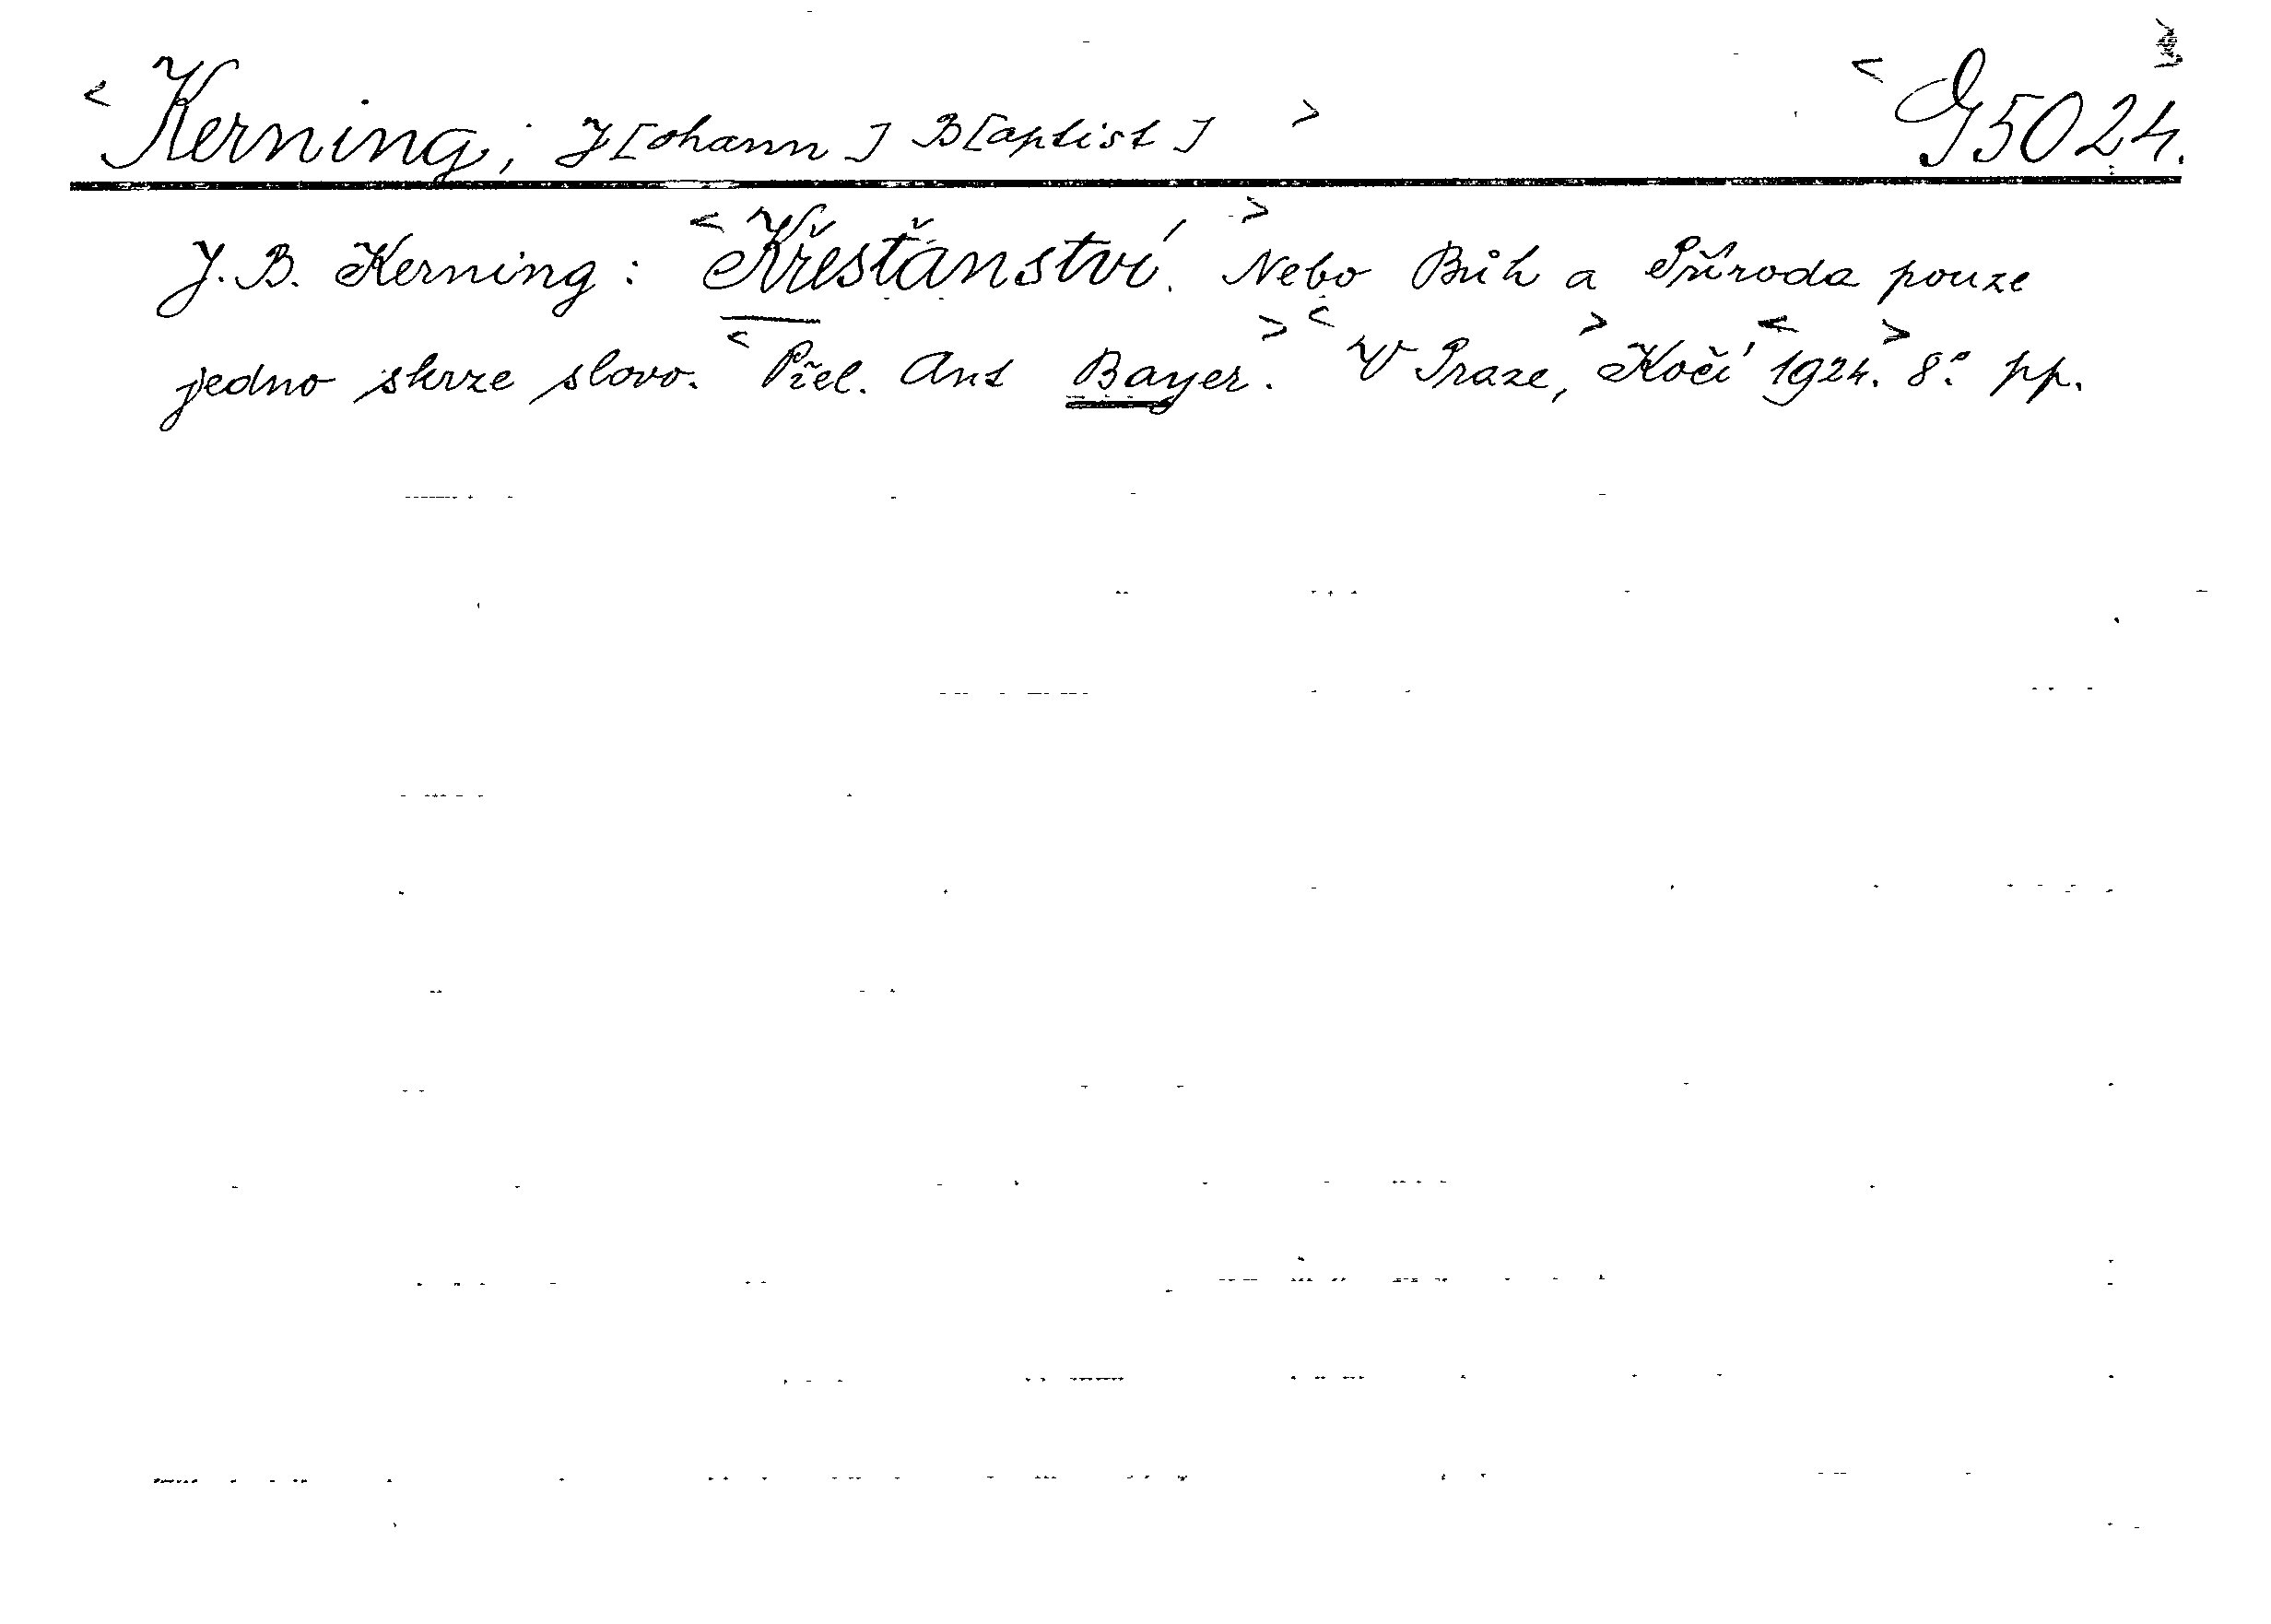 < Kerning, J[ohann] B[aptist] > < G 5024.
J. B. Kerning: < Křesťanství. > Nebo Bůh a Příroda pouze
jedno skrze slovo. < Přel. Ant Bayer. > < V Praze, > Kočí < 1924. > 8° pp.